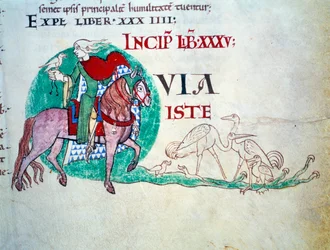 semet ipsi principalit humilitate tuentur;
EXPL LIBER · XXX IIII:
INCIP̃ LIB̃·XXXV:
QVIA
ISTE